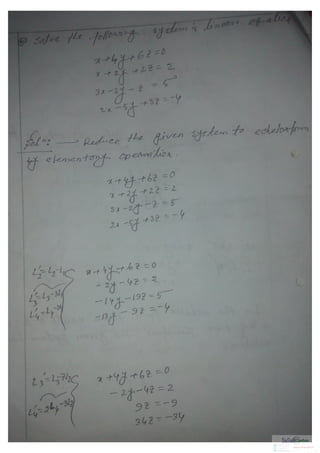 Solve the following system of linear equation
x+4y+6z=0
x+2y+2z=2
3x-2y-z=5
2x-5y+3z=-4
Sol:- → Reduce the given system to echelon form
by elementary operation.
x+4y+6z=0
x+2y+2z=2
3x-2y-z=5
2x-5y+3z=-4
x+4y+6z=0
-2y-4z=2
-14y-19z=5
-13y-9z=-4
x+4y+6z=0
-2y-4z=2
9z=-9
34z=-34